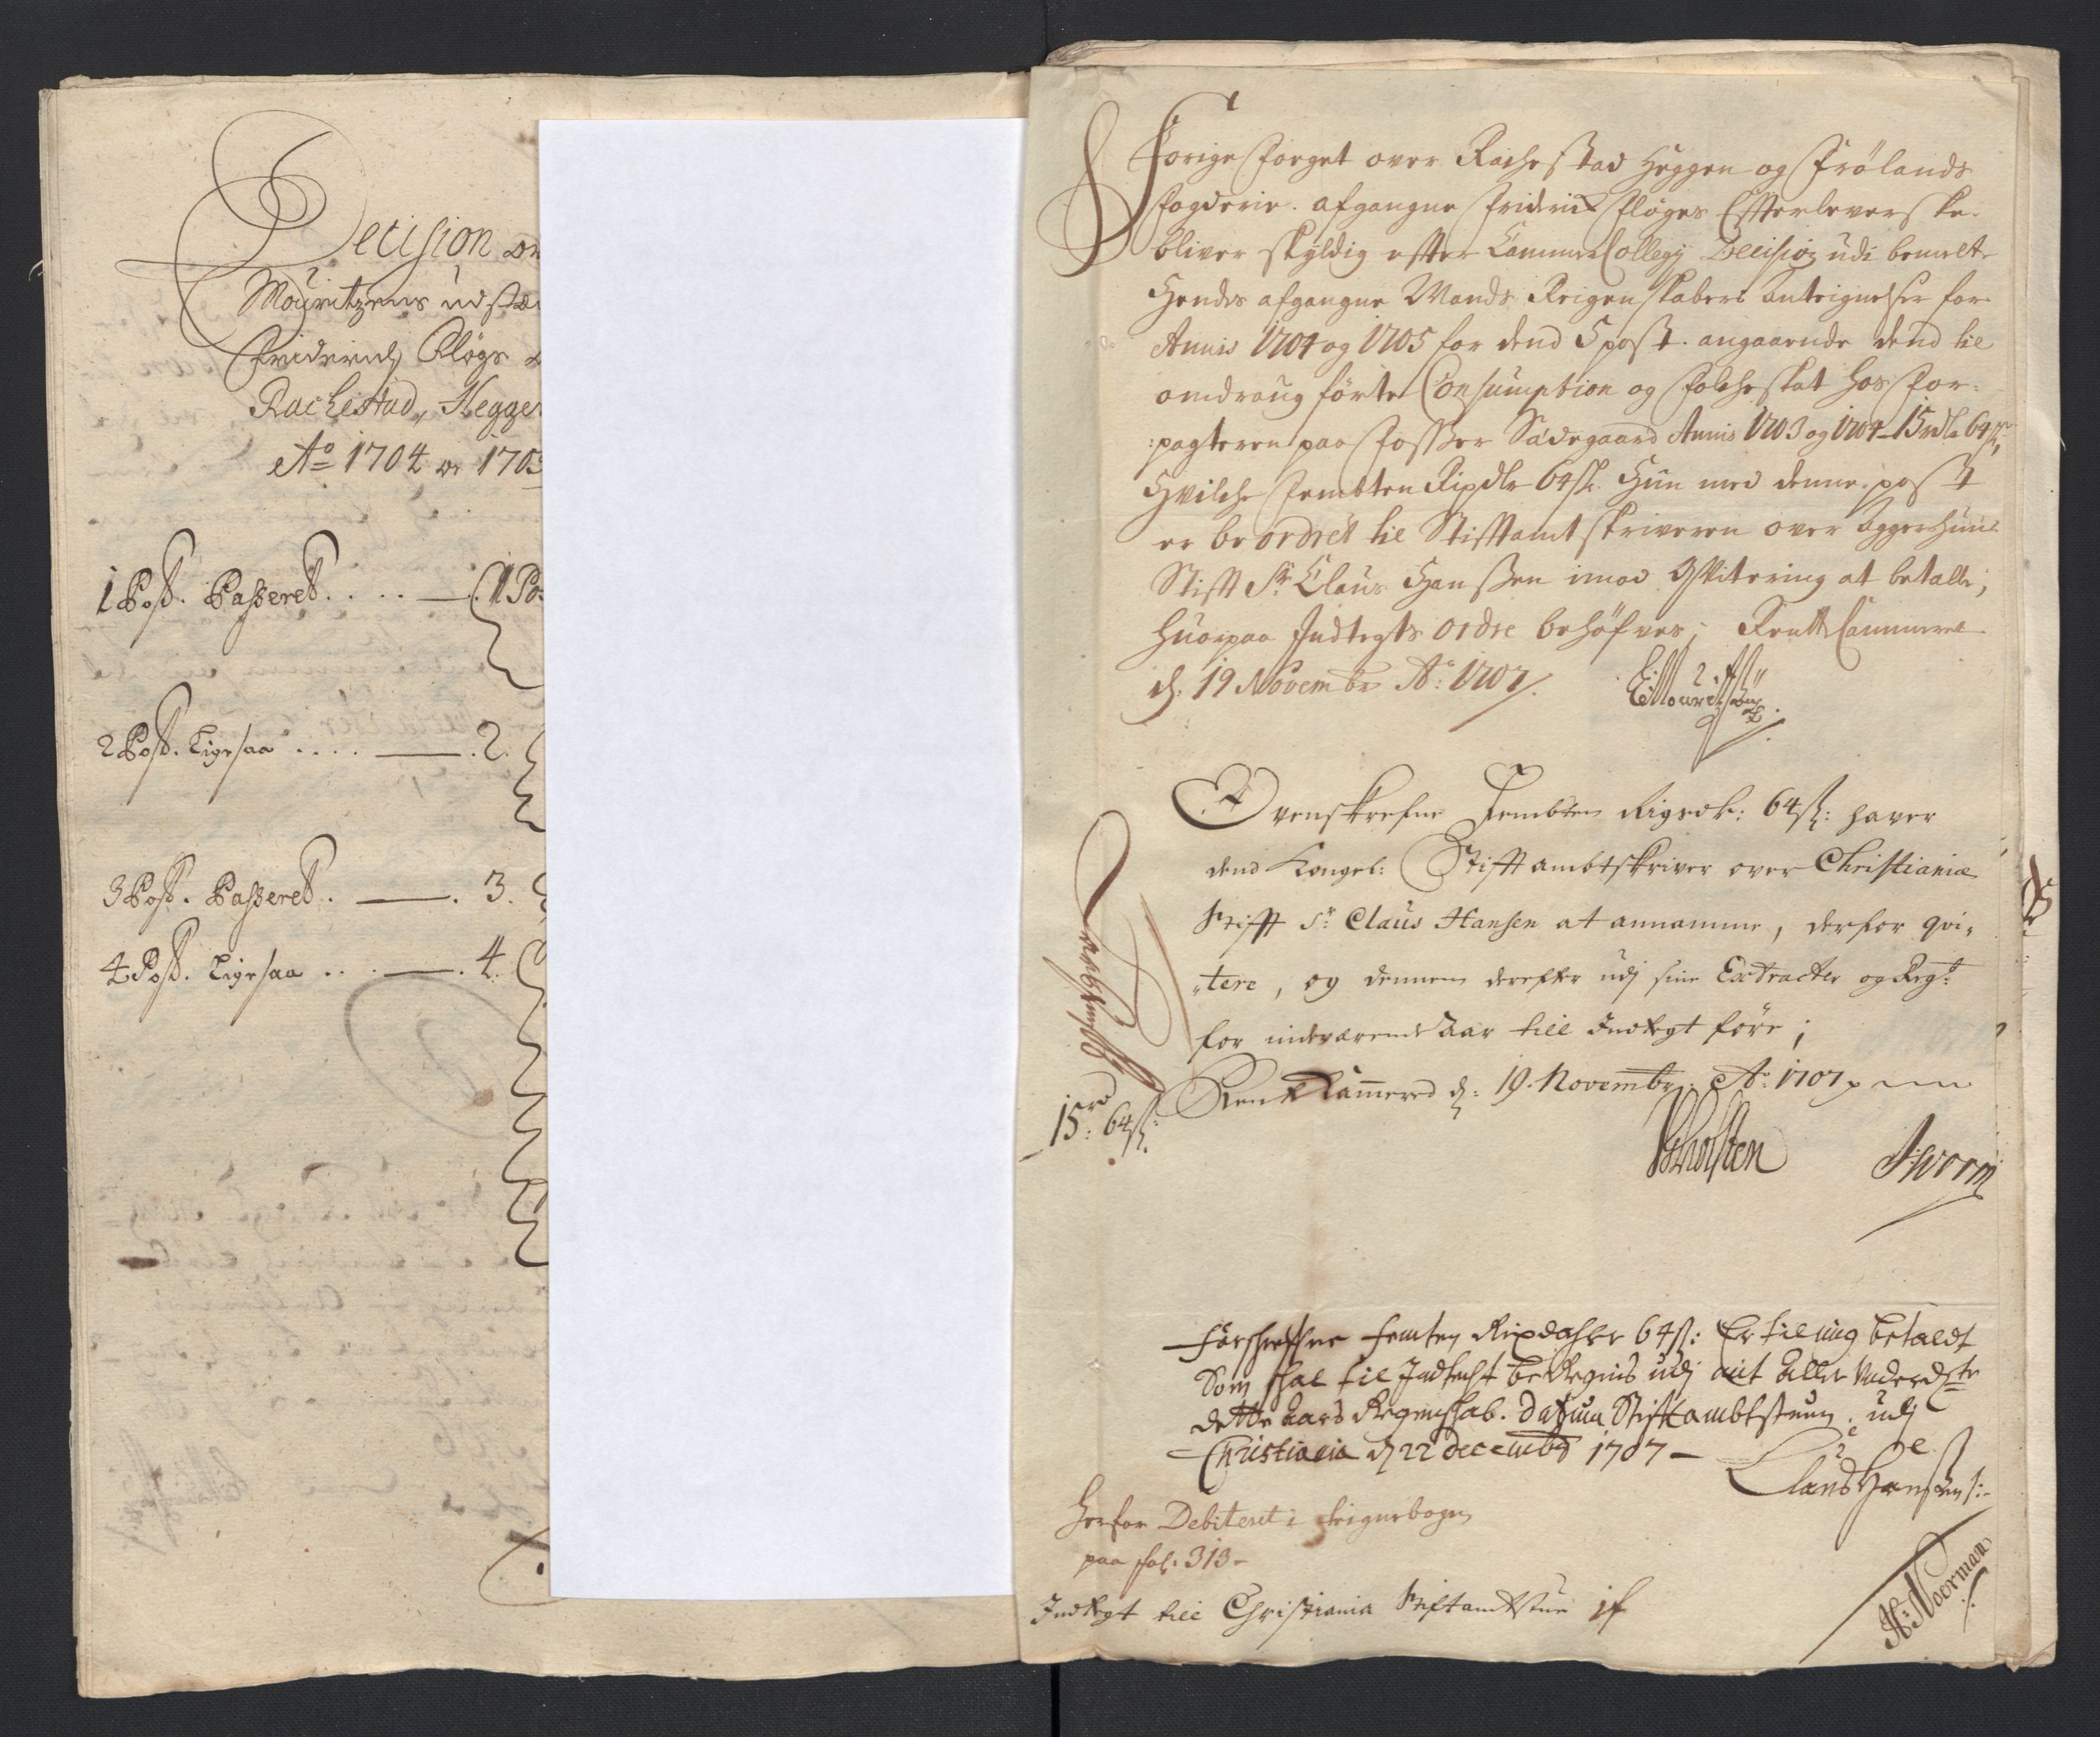 Decision
Mouritzens udstæ
Friderich Pløgs
Rachestad, Hegge
Ao 1704 og 1705
1 Post. Passeret . . . . 1 Po
2 Post. Ligesaa . . . . 2.
3 Post. Passeret . 3.
4 Post. Ligesaa . . . 4.
Forige foget over Rachestad Heggen og Frølands
fogderie. afgangne Friderich Pløges Effterleverske.
bliver skyldig effter Cammer Collegij Decision udi bemelte
Hendes afgangne Mands Reigenskabers Anteignelser for
Annis 1704 og 1705 for dend 5 post. angaaende dend til
omdraug førte Consumption og folcheskat hos for:
:pagteren paa fosser Sædegaard Annis 1703 og 1704 - 15 rdlr 64 s
Hvilche fembten Rixdlr 64 s. Hun med denne post
er beordret til Stifftamtskriveren over Aggershuus
Stifft Sr Claus Hanssen imod Qvitering at betalle;
huorpaa Indtegts ordre behøfves; Rentte Cammeret
d. 19 Novembr Ao: 1707.
Ofvenskrefne Fembten Rigsdr: 64 s: haver
dend Kongel: Stifft ambtskriver over Christianiæ
Stifft Sr: Claus Hansen at annamme, derfor qvi-
-tere, og dennem derefter udj sine Extracter og Regs:
for indeværende Aar till Indtegt føre;
Rente Cammered d: 19. Novembr: Ao: 1707
15 rd: 64 s:
Holsten
JWorm
Forschrefne femten Rixdahler 64 s: Er til mig betaldt
Som schal til Indtecht beregnis udj mit Aller
dette Aars Regenschab. Datum Stifftambtstuen. udj
Christiania d 22 decembr 1707 -
Claus Hansen
Herfor Debiteret i Reignebogen
paa fol: 313 -
Indtegt till Christiania Stiftamtstue
H: Noorman